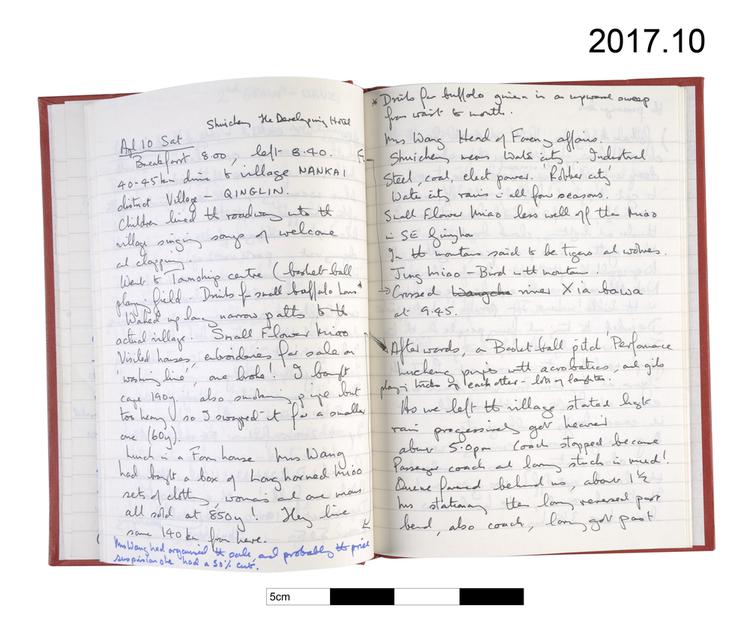 2017.10
Shuicheng The Developing Hotel
Apl 10 Sat
Breakfast 8.00, left 8.40.
40-45km drive to village NANKAI
district Village - QINGLIN.
Children lined the roadway into the
village singing songs of welcome
and clapping.
Went to Township centre (-basket ball
playing field. Drinks fr small buffalo horns*
Walked up long narrow paths to the
actual village. Small Flower Miao
Visited houses, embroideries for sale on
'washing line', one broke! I bought
cape 190y. also smoking pipe but
too heavy so I swapped it for a smaller
one (60y).
Lunch in a Farm house Mrs Wang
had bought a box of Long horned Miao
sets of clothg, womans and one mans
all sold at 850y! They live
some 140 km from here.
Mrs Wang had organised the sale, and probably the price
suspicion she had a 50% cut.
* Drinks fr buffalo given in an upward sweep
from waist to mouth.
Mrs Wang Head of Foreng affairs.
Shuicheng means Water city. Industrial
Steel, coal, elect power.
Water city rains in all four seasons.
Small Flower Miao less well off than Miao
in SE
In the mountains said to be tigers and wolves.
Jing Miao - Bird with
→ Crossed river Xia bawa
at 9.45.
Afterwards, on Basket-ball pitch Performance
lusheng pipes with acrobatics, and girls
playing tricks on each other - lots of laughter.
As we left the village started light
rain progressively got heavier
about 5.0pm Coach stopped because
Passenger coach and lorry stuck in mud!
Queue formed behind us, about 1½
hrs stationary then lorry reversed past
bend, also coach, lorry got past
5cm